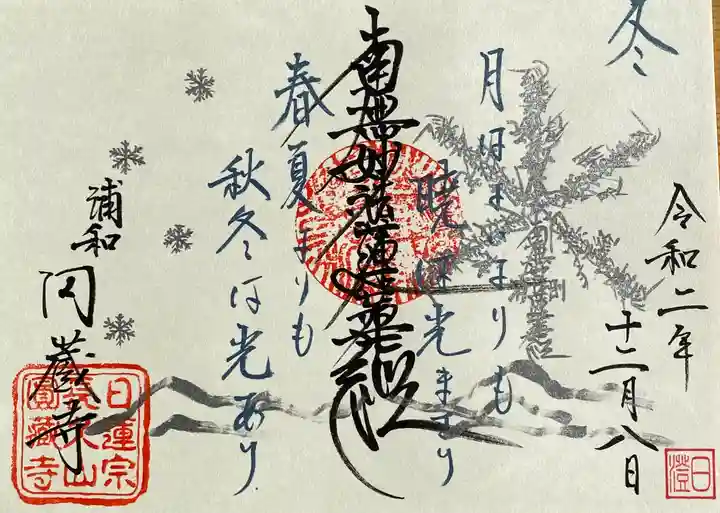 冬
令和二年
十二月八日
月はよいよりも
暁は光まさり
南無妙法蓮華経
春夏よりも
秋冬は光あり
浦和
円蔵寺
日蓮宗
圓蔵寺
日澄